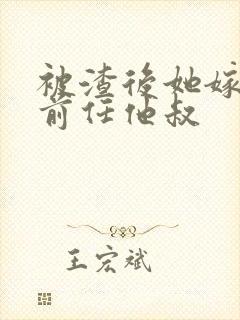 被渣後她嫁
前任他叔
王宏斌